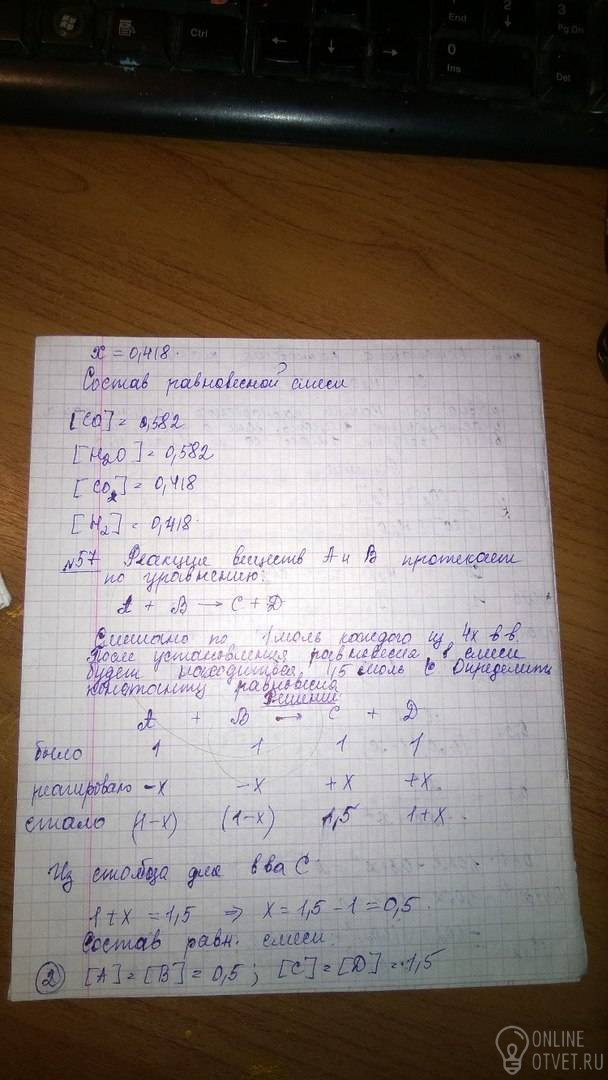 End
2
↓
3
Pg Dn
Ctrl
←
↓
→
0
Ins
Del
x = 0,418.
Состав равновесной смеси
[CO] = 0,582
[H2O] = 0,582
[CO2] = 0,418
[H2] = 0,418.
№57 Реакция веществ А и В протекает
по уравнению:
A + B → C + D
Смешано по 1 моль каждого из 4х в-в.
После установления равновесия в смеси
будет находиться 1,5 моль С. Определить
константу равновесия
Решение
A + B → C + D
было 1 1 1 1
реагировало -x -x +x +x
стало (1-x) (1-x) 1,5 1+x
Из столбца для в-ва С
1+x = 1,5 ⇒ x = 1,5 - 1 = 0,5.
Состав равн. смеси:
2 [A] = [B] = 0,5; [C] = [D] = 1,5
ONLINE
OTVET.RU